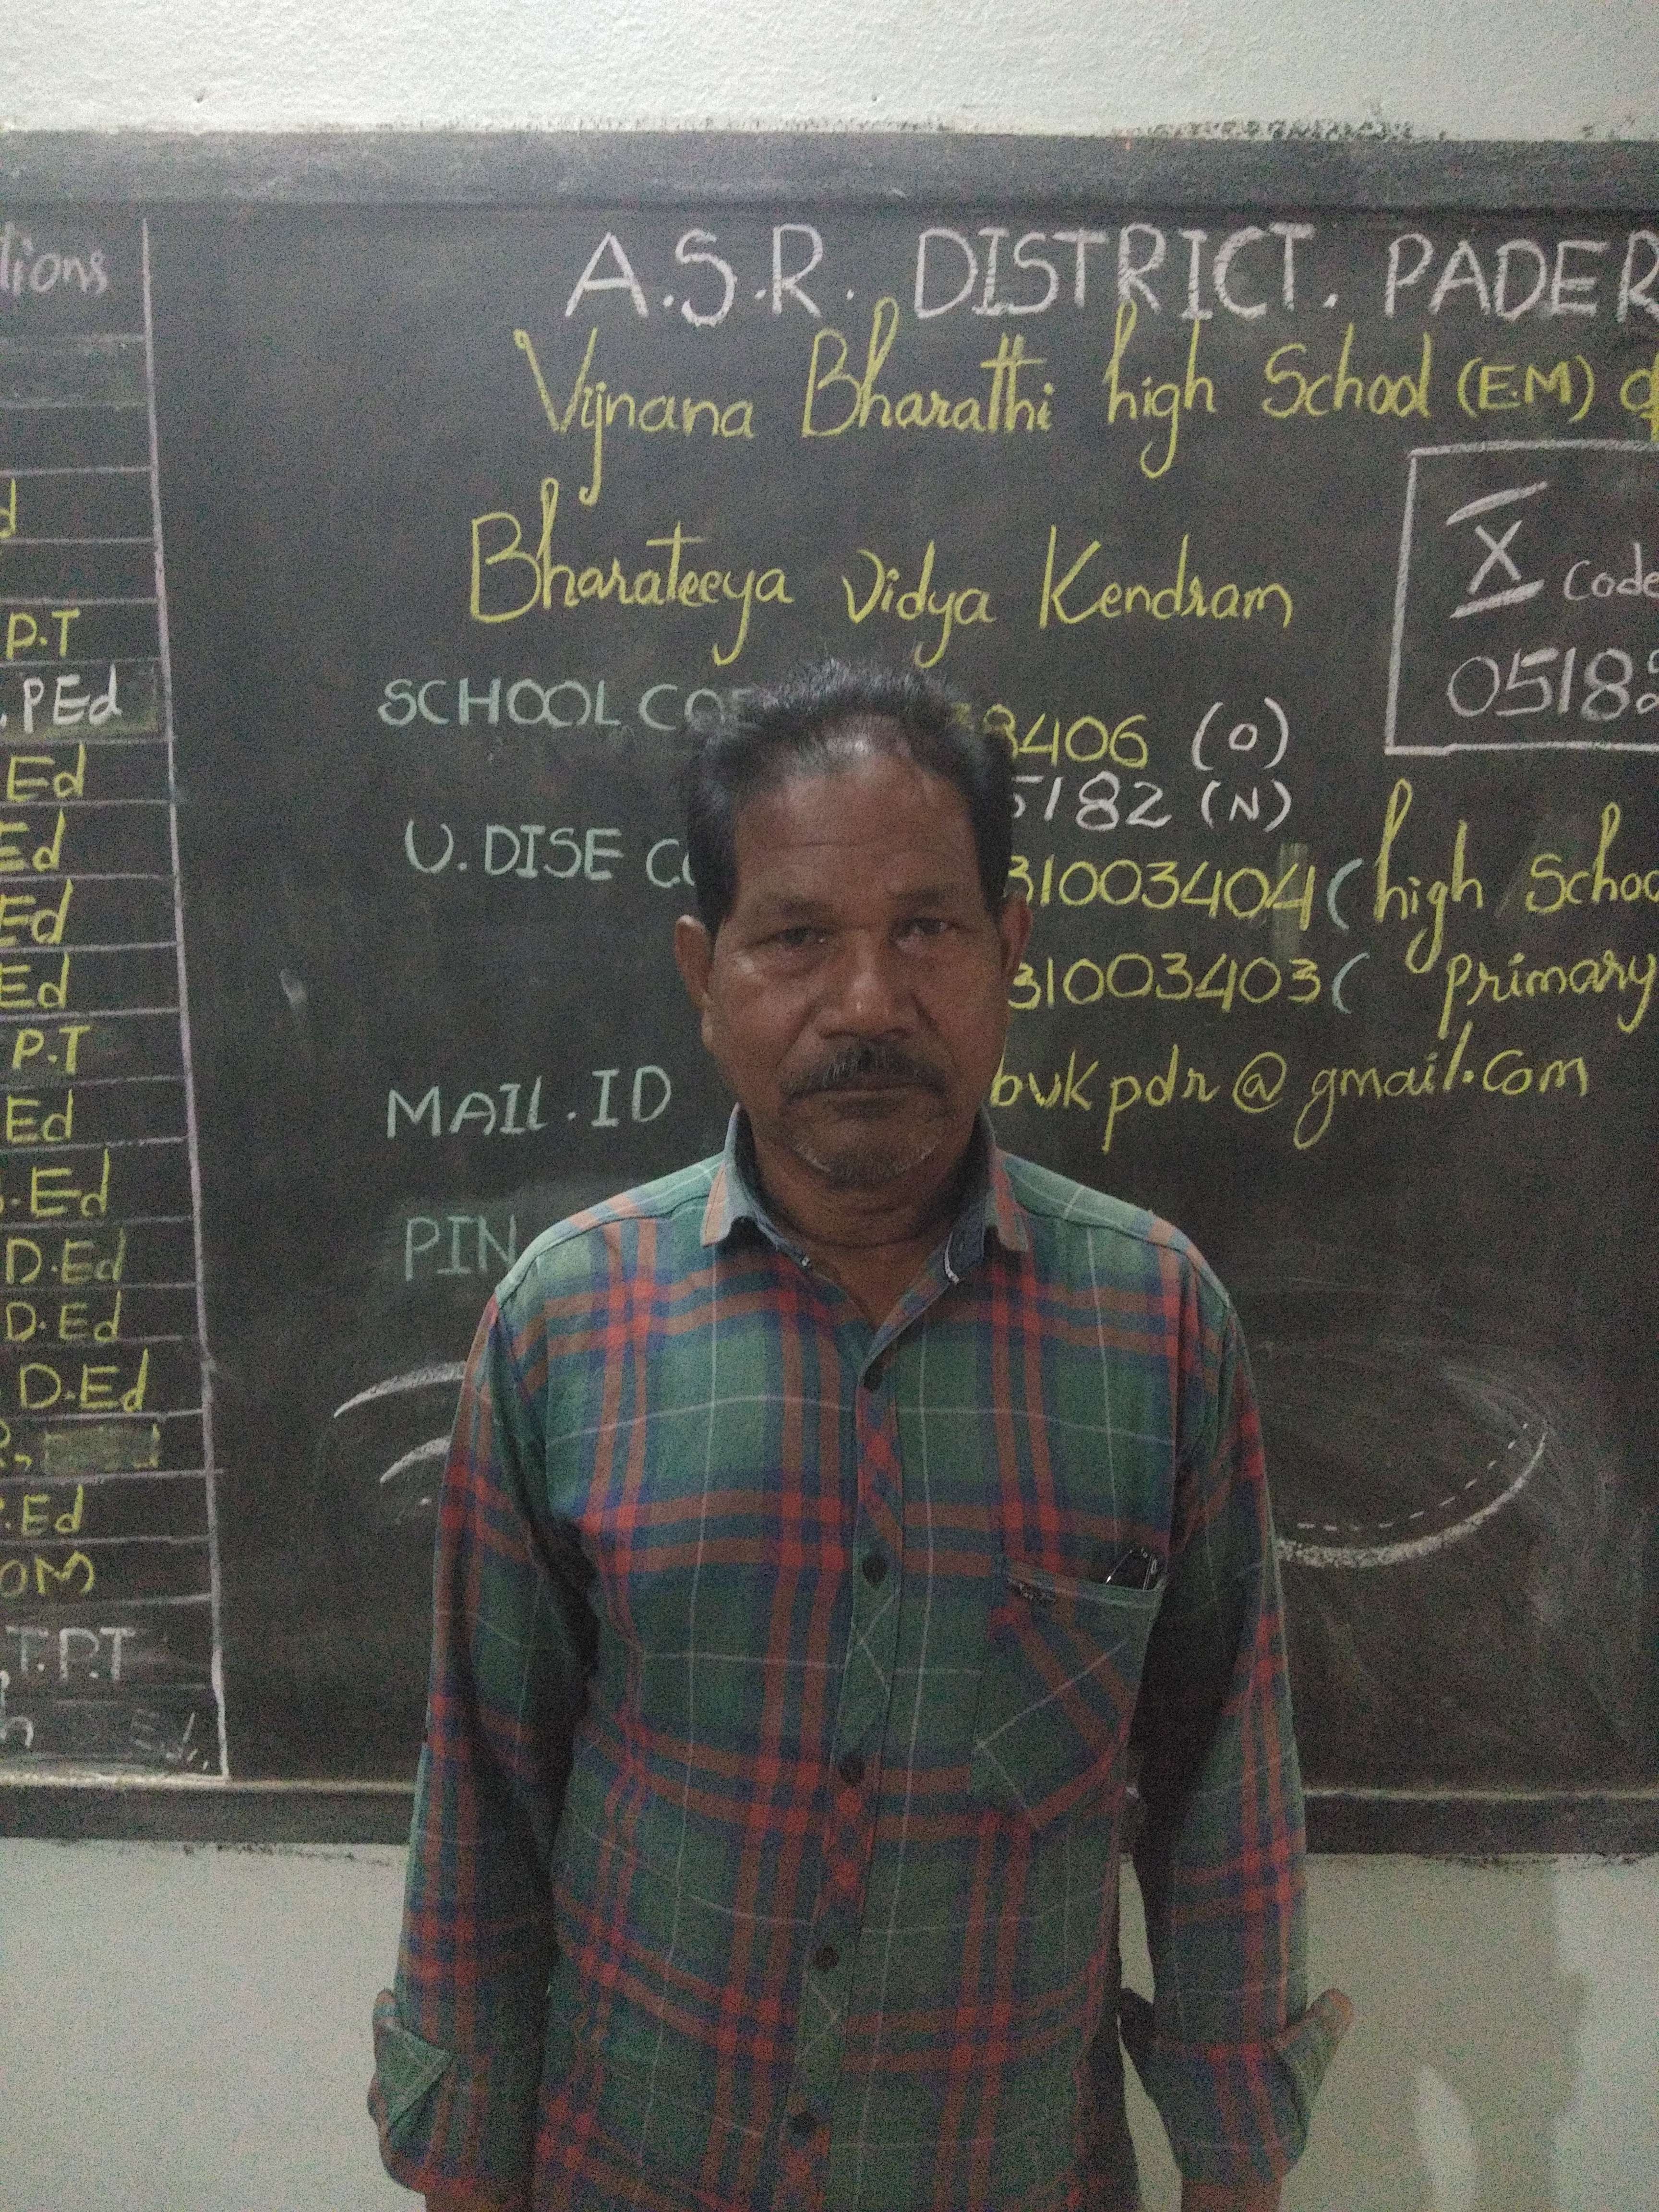 tions
d
P.T
, PEd
Ed
Ed
Ed
Ed
P.T
Ed
.Ed
D.Ed
D.Ed
D.Ed
.Ed
OM
,T.P.T
h Ed.
A.S.R. DISTRICT. PADER
Vijnana Bharathi high School (E.M) of
Bharateeya Vidya Kendram
X Code
05182
SCHOOL CO 8406 (O)
5182 (N)
U.DISE CO 31003404 ( high Schoo
31003403 ( primary
MAIL.ID bvkpdr@gmail.com
PIN